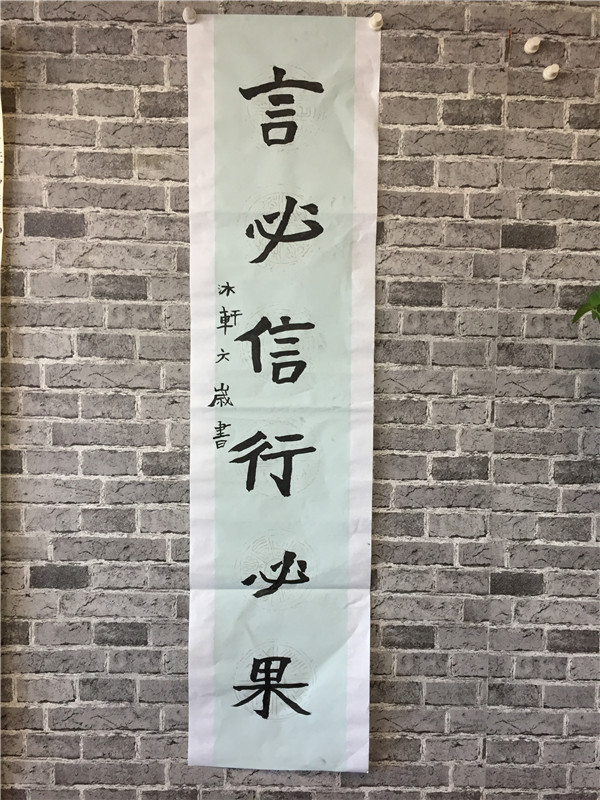 言必信行必果
冰軒六歲書